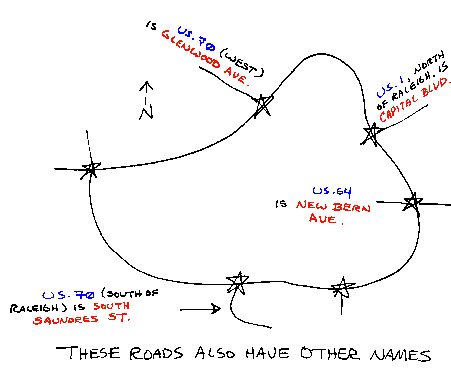 US.70 (WEST)
IS GLENWOOD AVE.
US.1, NORTH
OF RALEIGH, IS
CAPITAL BLVD.
N
US.64
IS NEW BERN
AVE.
US.70 (SOUTH OF
RALEIGH) IS SOUTH
SAUNDRES ST.
THESE ROADS ALSO HAVE OTHER NAMES